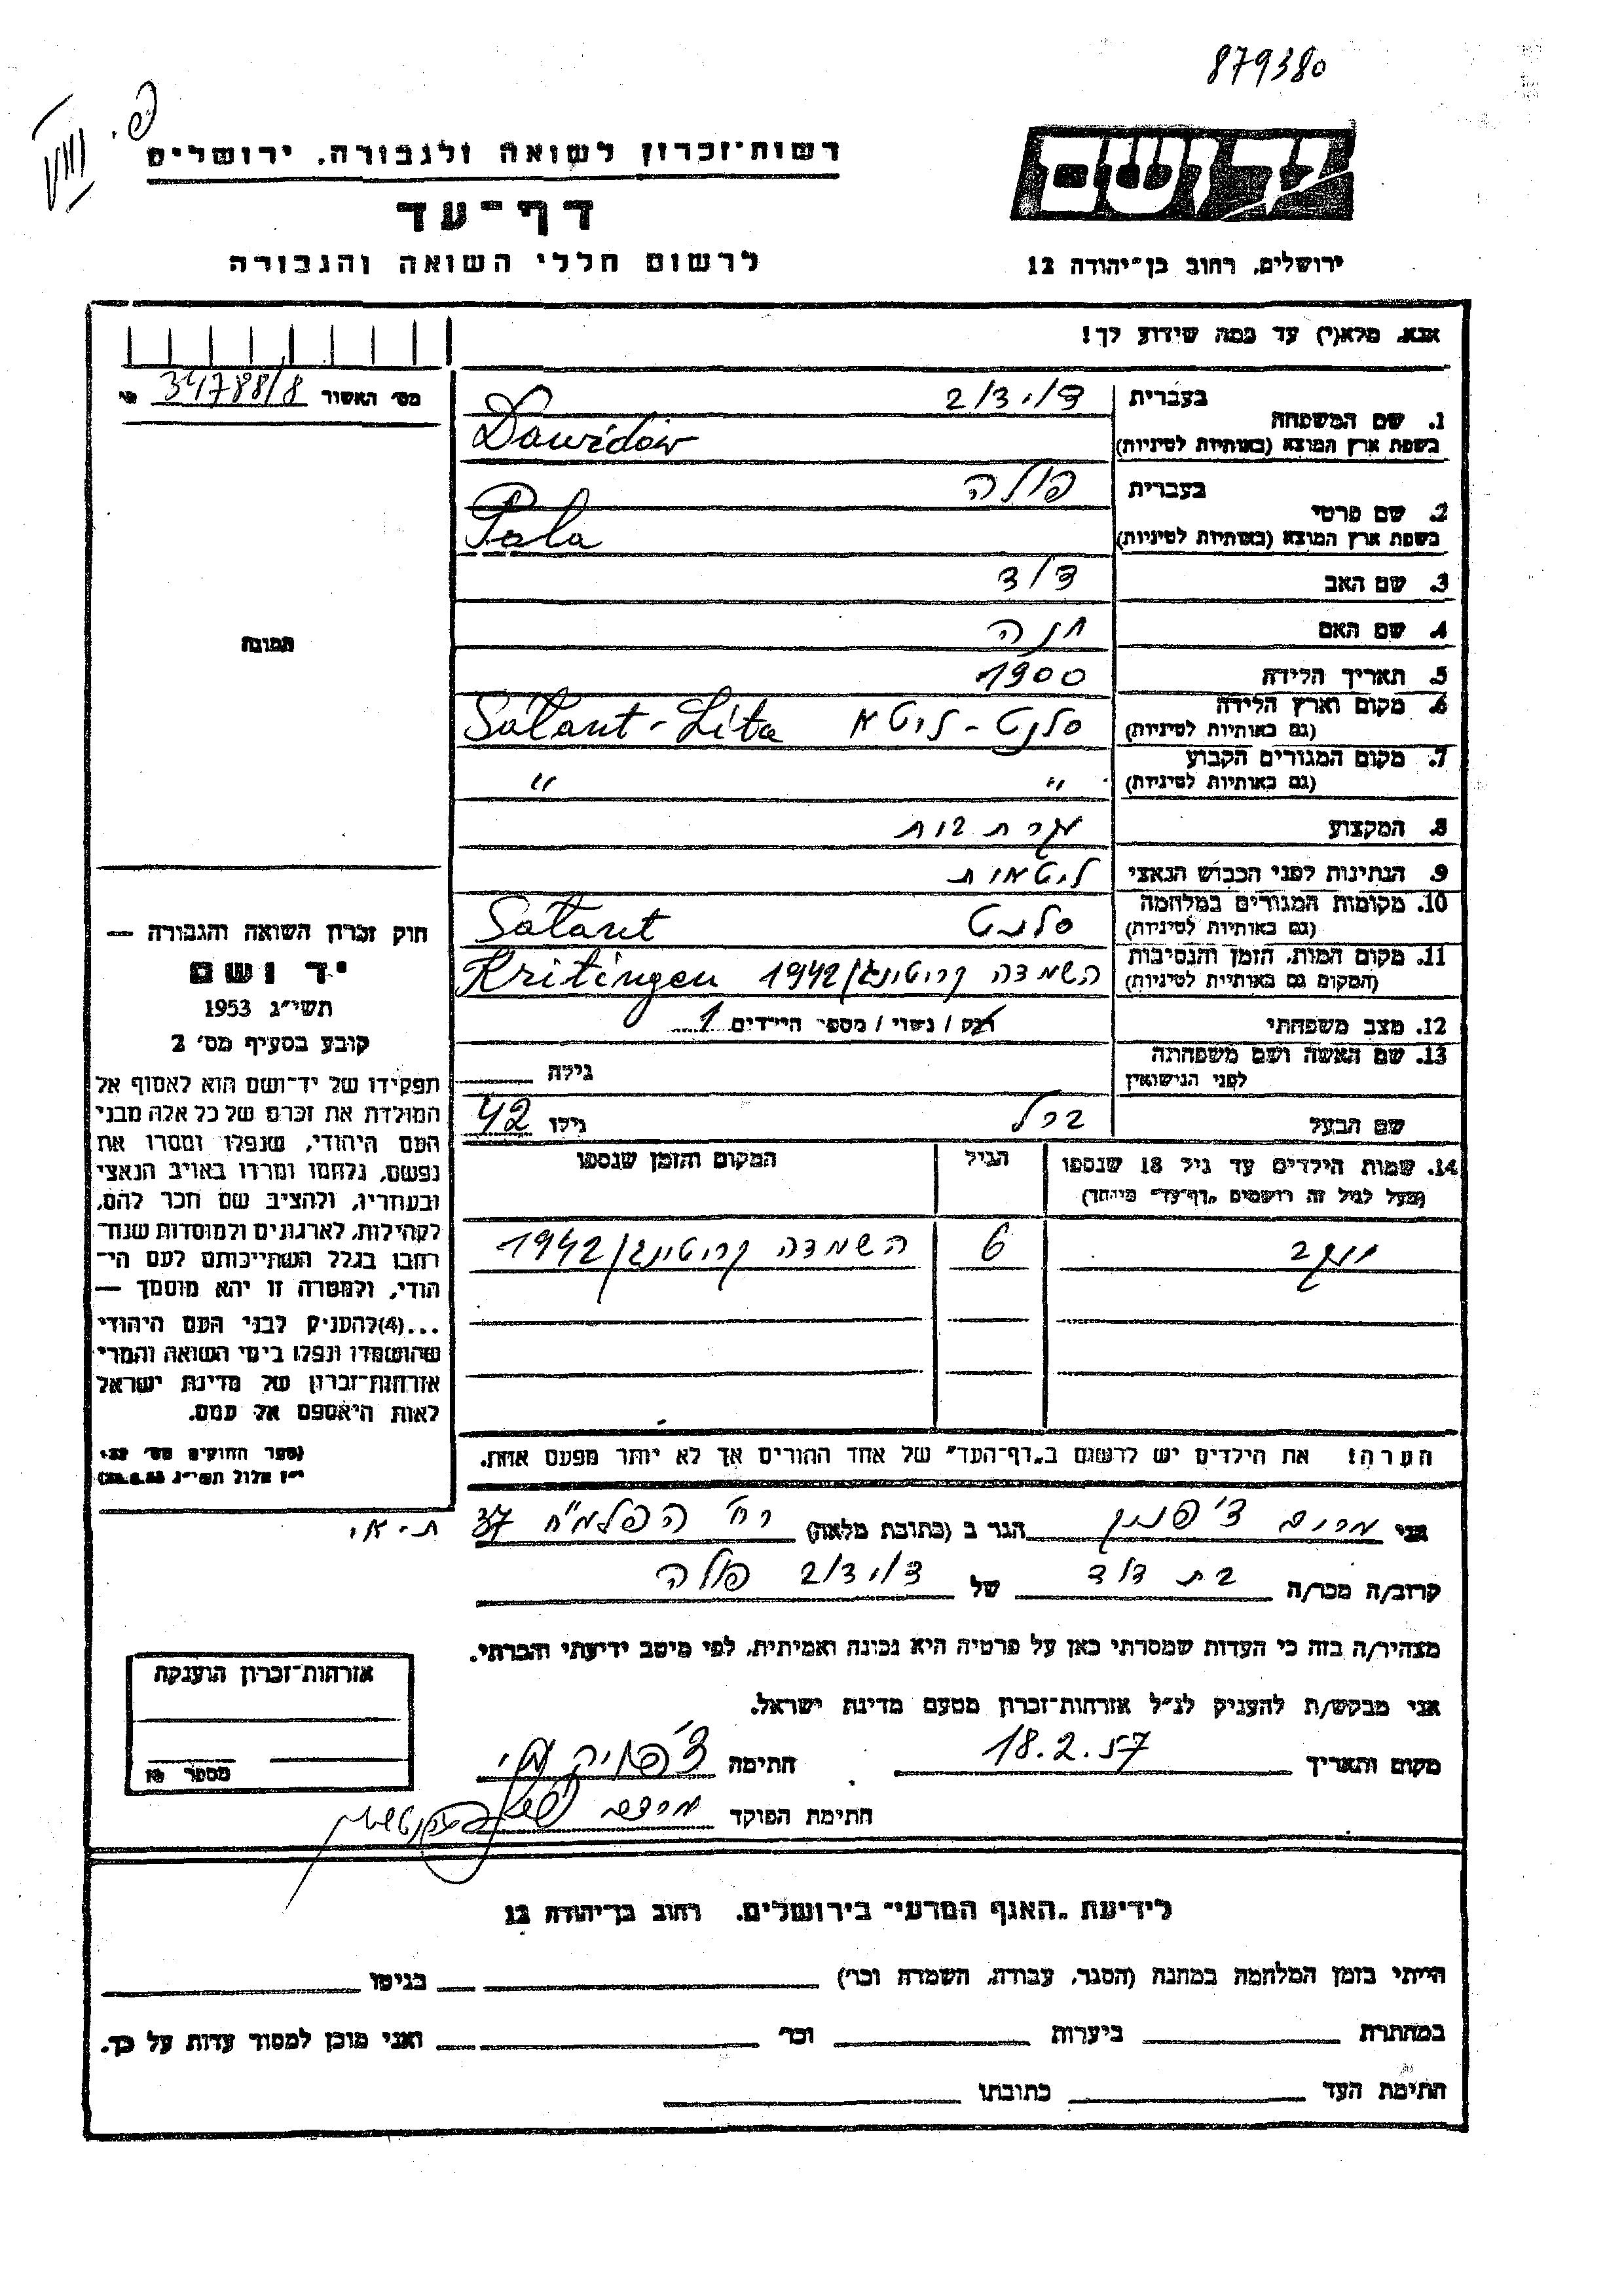 879380
רשות־זכרון לשואה ולגבורה, ירושלים
יד ושם
דף־עד
לרשום חללי השואה והגבורה
ירושלים, רחוב בן־יהודה 12
אנא, מלא(י) עד כמה שידוע לך!
מס׳ האשור 34788/8
1. שם המשפחה
בעברית דוידוב
בשפת ארץ המוצא (באותיות לטיניות) Dawidow
2. שם פרטי
בעברית פולה
בשפת ארץ המוצא (באותיות לטיניות) Pola
3. שם האב דוד
4. שם האם חנה
5. תאריך הלידה 1900
6. מקום וארץ הלידה
(גם באותיות לטיניות) סלנט - ליטא Salant - Lita
7. מקום המגורים הקבוע
(גם באותיות לטיניות) " "
8. המקצוע עקרת בית
9. הנתינות לפני הכבוש הנאצי ליטאית
10. מקומות המגורים במלחמה
(גם באותיות לטיניות) סלנט Salant
11. מקום המות, הזמן והנסיבות
(המקום גם באותיות לטיניות) השמדה קריטינגן 1942 Kritingen
12. מצב משפחתי רווק / נשוי / מספר הילדים 1
13. שם האשה ושם משפחתה
לפני הנישואין גילה
שם הבעל ברל גילו 42
14. שמות הילדים עד גיל 18 שנספו
(מעל לגיל זה רושמים „דף־עד״ מיוחד)
הגיל
המקום והזמן שנספו
יעקב 6 השמדה קריטינגן 1942
הערה! את הילדים יש לרשום ב„דף־העד״ של אחד ההורים אך לא יותר מפעם אחת.
תמונה
חוק זכרון השואה והגבורה —
יד ושם
תשי״ג 1953
קובע בסעיף מס׳ 2
תפקידו של יד־ושם הוא לאסוף אל
המולדת את זכרם של כל אלה מבני
העם היהודי, שנפלו ומסרו את
נפשם, נלחמו ומרדו באויב הנאצי
ובעוזריו, ולהציב שם וזכר להם,
לקהילות, לארגונים ולמוסדות שנח־
רבו בגלל השתייכותם לעם הי־
הודי, ולמטרה זו יהא מוסמך —
...(4)להעניק לבני העם היהודי
שהושמדו ונפלו בימי השואה והמרי
אזרחות־זכרון של מדינת ישראל
לאות היאספם אל עמם.
(ספר החוקים מס׳ 132,
י״ז אלול תשי״ג 28.8.53)
אני מרים הגר ב (כתובת מלאה) רח׳ הפלמ״ח 37 ת-א
קרוב/ה מכר/ה בת דוד של דוידוב פולה
מצהיר/ה בזה כי העדות שמסרתי כאן על פרטיה היא נכונה ואמיתית, לפי מיטב ידיעתי והכרתי.
אני מבקש/ת להעניק לנ״ל אזרחות־זכרון מטעם מדינת ישראל.
מקום ותאריך 18.2.57 חתימה
חתימת הפוקד
אזרחות־זכרון הוענקה
מספר
לידיעת „האגף המדעי״ בירושלים, רחוב בן־יהודה 12
הייתי בזמן המלחמה במחנה (הסגר, עבודה, השמדה וכו׳) בגיטו
במחתרת ביערות וכו׳ ואני מוכן למסור עדות על כך.
חתימת העד כתובתו